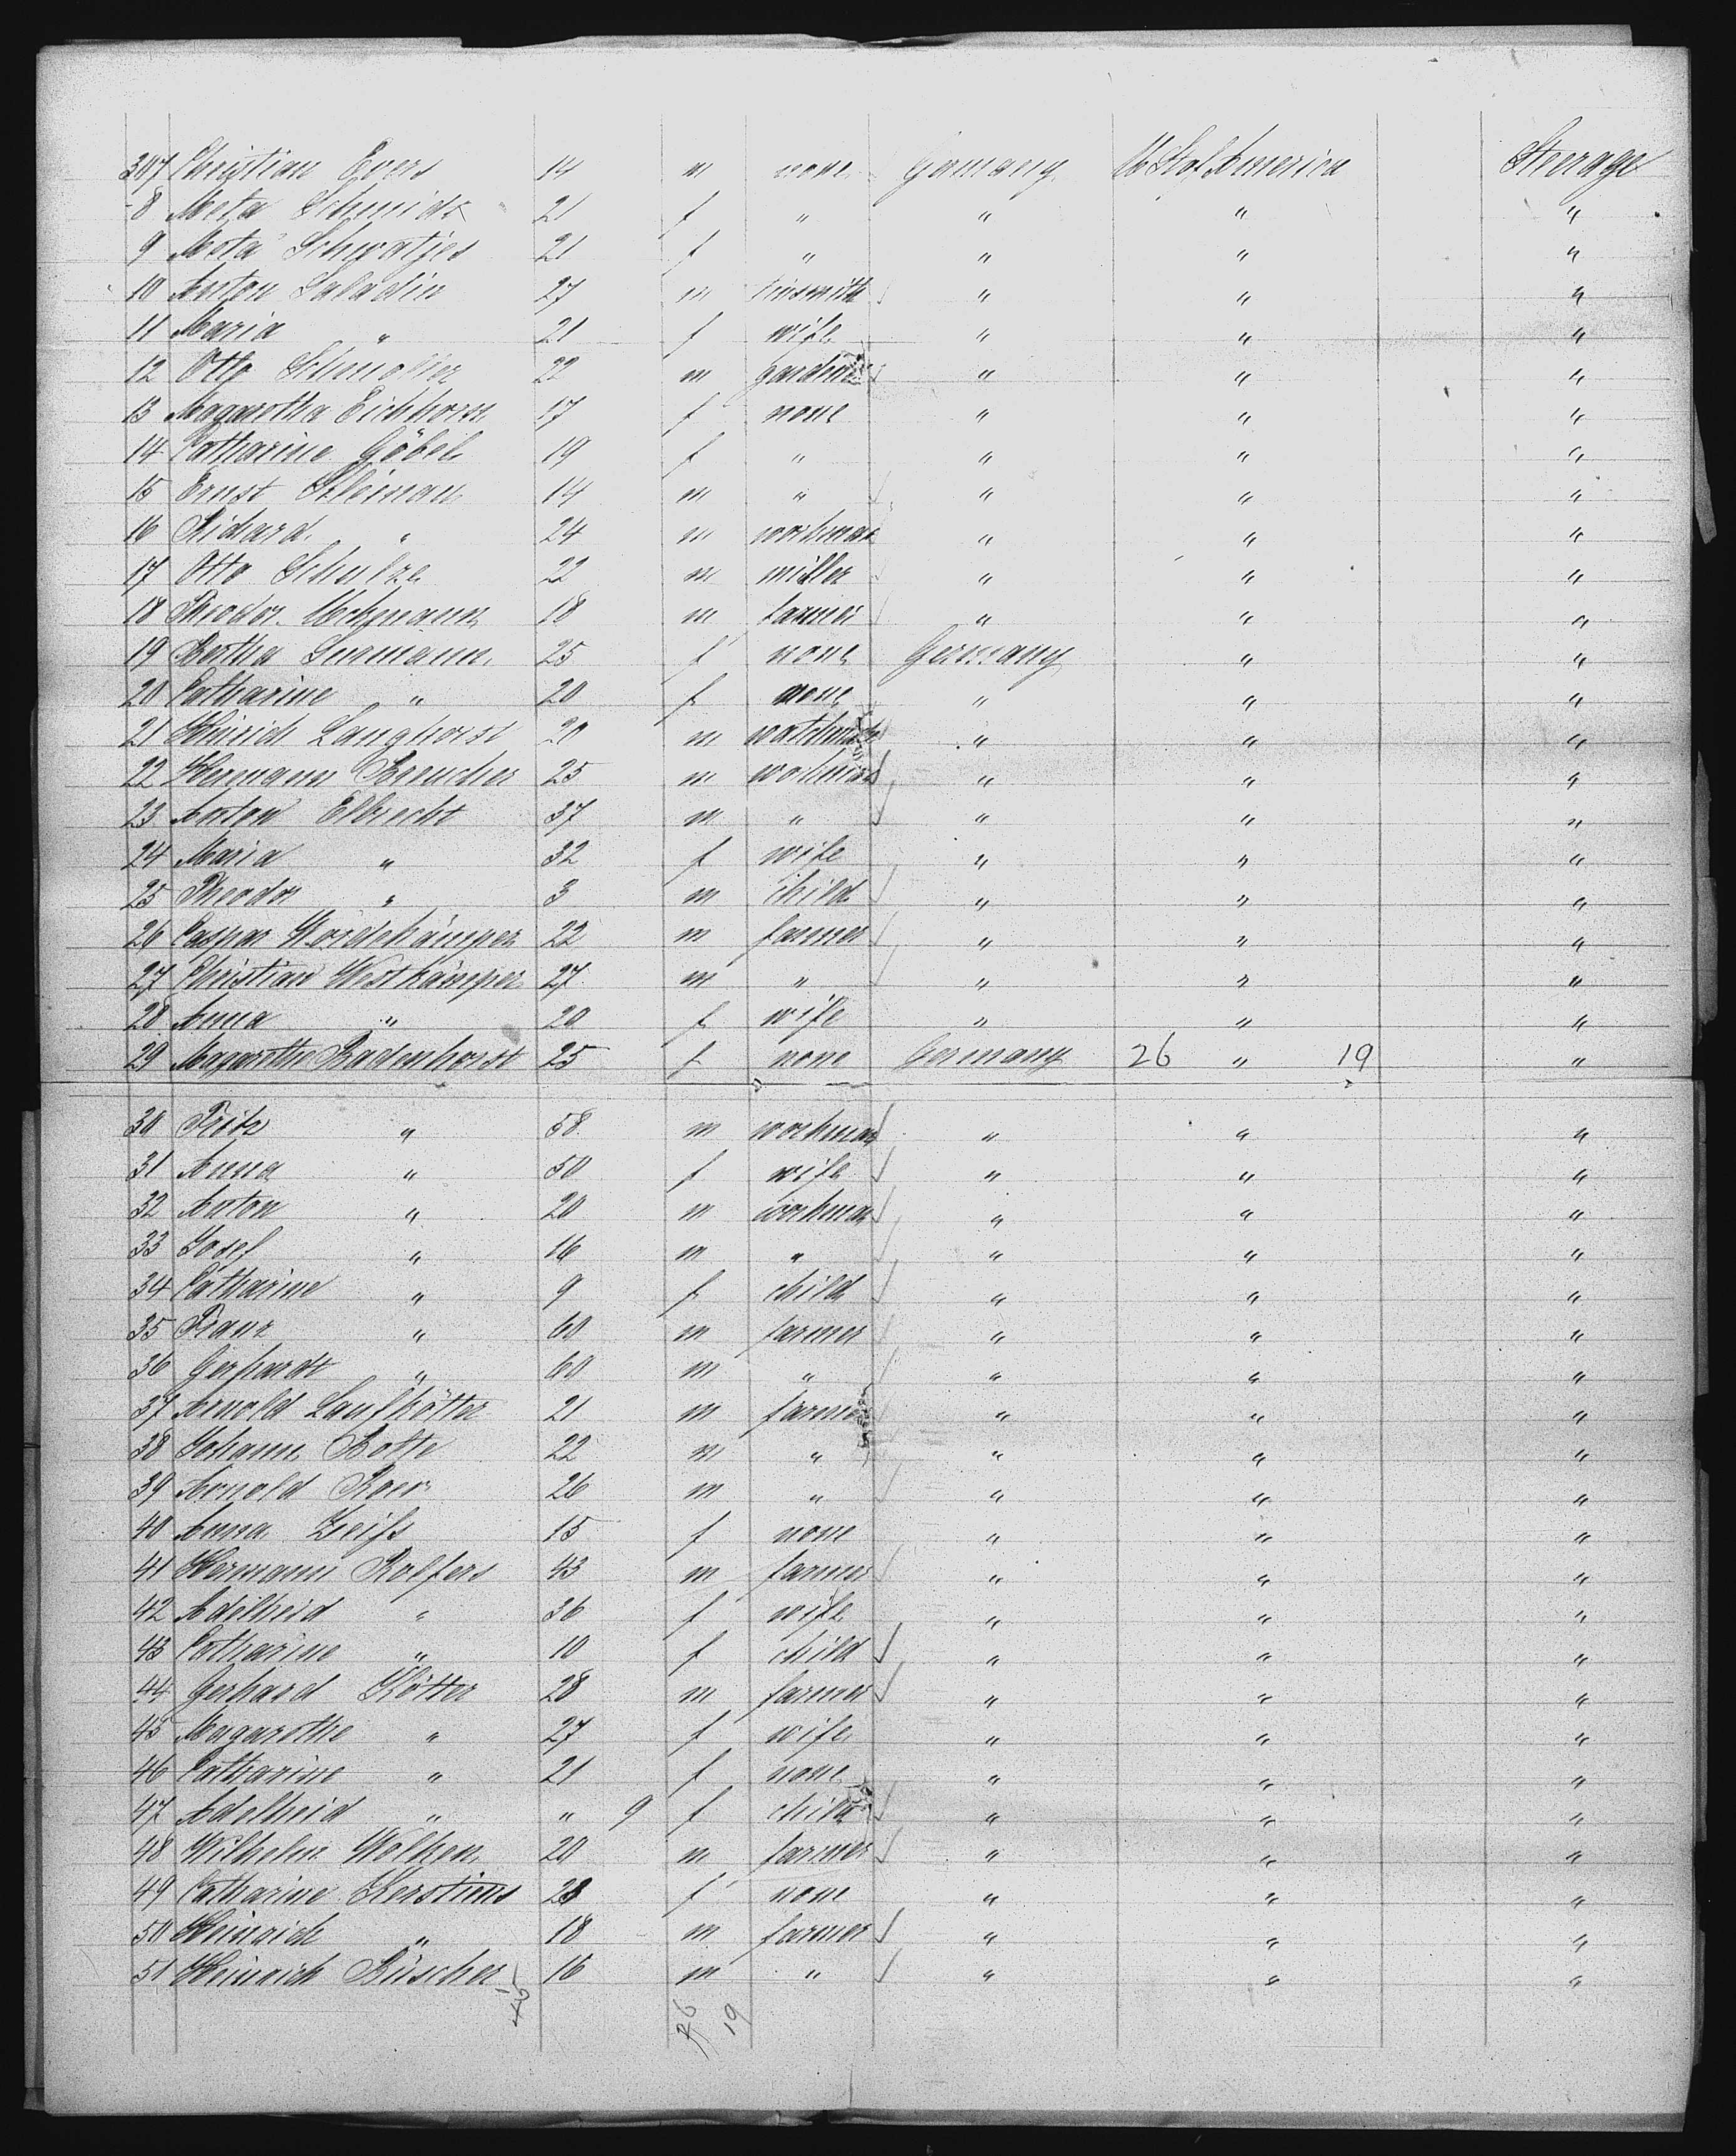 307 Christian Evers 14 m none Germany U St of America Steerage
8 Meta Schmidt 21 f " " " "
9 Meta Schwatjes 21 f " " " "
10 Anton Saladin 27 m tinsmith " " "
11 Maria " 21 f wife " " "
12 Otto 22 m gardiner " " "
13 Magaretha Eichhorn 17 f none " " "
14 Catharine Göbel 19 f " " " "
15 Ernst Kleiman 14 m " " " "
16 Richard " 24 m workman " " "
17 Otto Schulze 22 m miller " " "
18 Theodor 18 m farmer " " "
19 Bertha Surmann 25 f none Germany " "
20 Catharine " 20 f none " " "
21 Heinrich Langhorst 20 m " " "
22 Hermann Brencher 25 m workman " " "
23 Anton Elbrecht 37 m " " " "
24 Maria " 32 f wife " " "
25 Theodor " 3 m child " " "
26 Caspar Wördekämper 22 m farmer " " "
27 Christian Westkämper 27 m " " " "
28 Anna " 20 f wife " " "
29 Magarethe Badenhorst 25 f none Germany 26 " 19 "
30 Fritz " 58 m workman " " "
31 Anna " 50 f wife " " "
32 Anton " 20 m workman " " "
33 Josef " 16 m " " " "
34 Catharine " 9 f child " " "
35 Franz " 60 m farmer " " "
36 Gerhardt " 60 m " " " "
37 Arnold Laufkötter 21 m farmer " " "
38 Johann Bolte 22 m " " " "
39 Arnold 26 m " " " "
40 Anna Zeifs 15 f none " " "
41 Hermann Rolfers 43 m farmer " " "
42 Adelheid " 36 f wife " " "
43 Catharine " 10 f child " " "
44 Gerhard Kötter 28 m farmer " " "
45 Magarethe " 27 f wife " " "
46 Catharine " 21 f none " " "
47 Adelheid " " 9 f child " " "
48 Wilhelm Wolken 20 m farmer " " "
49 Catharine Kerstiens 23 f none " " "
50 Heinrich " 18 m farmer " " "
51 Heinrich Büscher 16 m " " " "
45 26 19